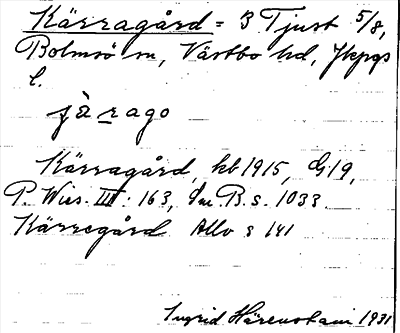 Kärragård = 3 Tjust 5/8,
Bolmsö sn, Västbo hd, Jkpgs
l.
jà rago
Kärragård, kb 1915, G19,
P. Wies. III: 163, Im. B. s. 1033
Kärregård Allo s 141
Ingrid Härenstam 1931